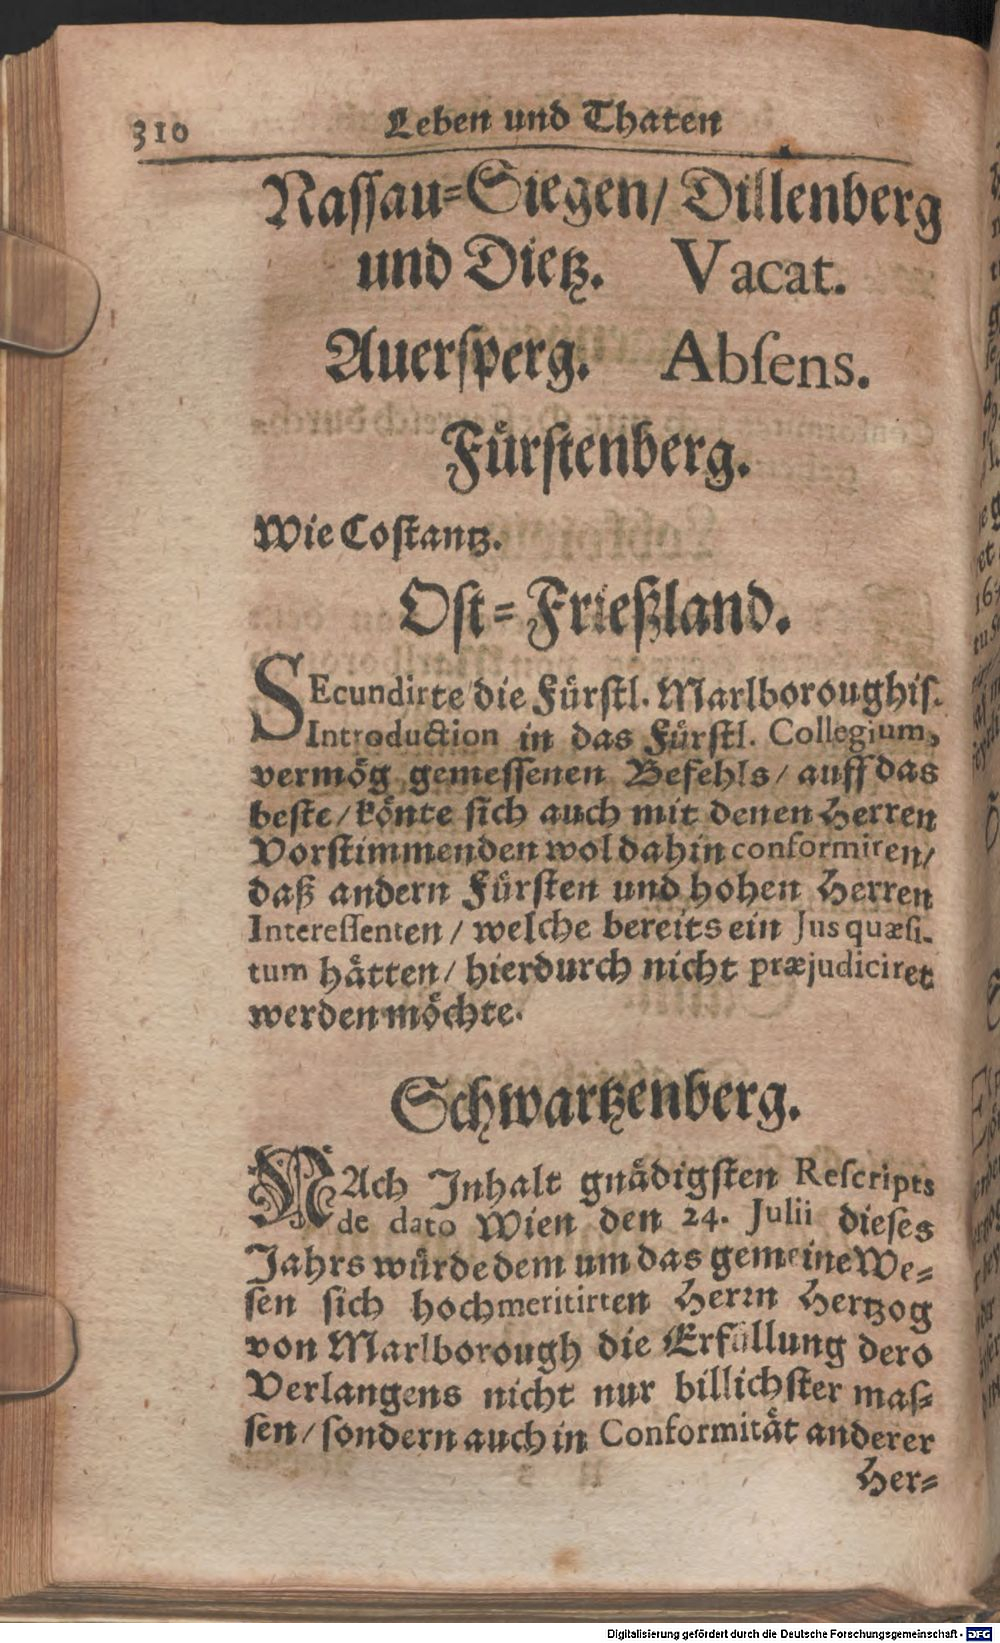 310 Leben und Thaten
Nassau-Siegen/ Dillenberg
und Dietz. Vacat.
Auersperg. Absens.
Fürstenberg.
Wie Costantz.
Ost-Frießland.
SEcundirte die Fürstl. Marlboroughis.
Introduction in das Fürstl. Collegium,
vermög gemessenen Befehls/ auff das
beste/ könte sich auch mit denen Herren
Vorstimmenden wol dahin conformiren/
daß andern Fürsten und hohen Herren
Interessenten/ welche bereits ein Jus quæsi-
tum hätten/ hierdurch nicht præjudiciret
werden möchte.
Schwartzenberg.
NAch Inhalt gnädigsten Rescripts
de dato Wien den 24. Julii dieses
Jahrs würde dem um das gemeine We-
sen sich hochmeritirten Herrn Hertzog
von Marlborough die Erfüllung dero
Verlangens nicht nur billichster mas-
sen/ sondern auch in Conformität anderer
Her-
Digitalisierung gefördert durch die Deutsche Forschungsgemeinschaft - DFG